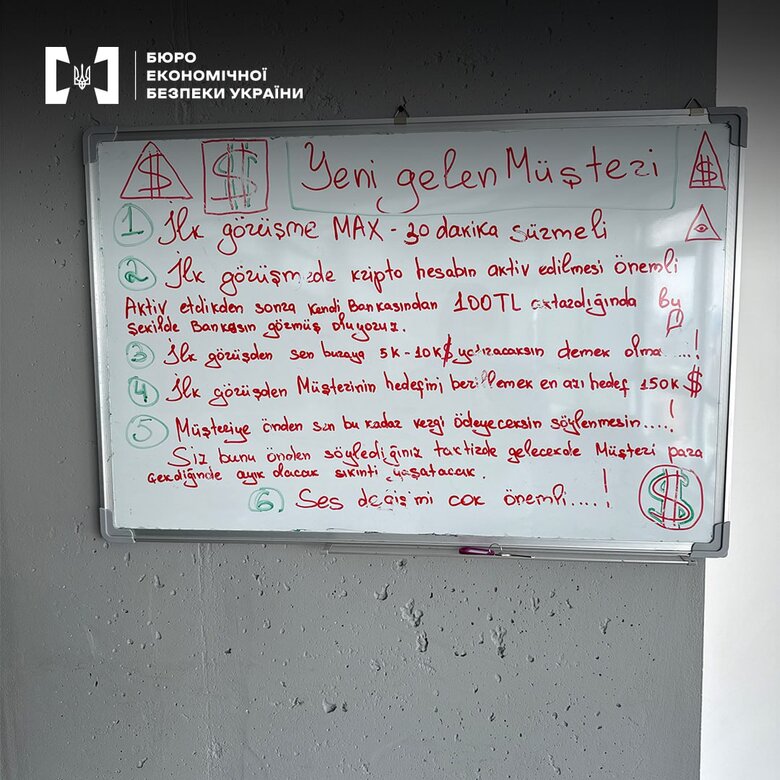 БЮРО
ЕКОНОМІЧНОЇ
БЕЗПЕКИ УКРАЇНИ
$ $ Yeni gelen Müşteri $
1 İlk görüşme MAX - 30 dakika süzmeli
2 İlk görüşmede kripto hesabın aktiv edilmesi önemli
Aktiv etdikden sonra kendi Bankasından 100TL aktardığında By
şekilde Bankasın görmüş oluyoruz.
3 İlk görüşden sen buraya 5K-10K$ yatıracaksın demek olma....!
4 İlk görüşden Müşterinin hedefini berillemek en azı hedef 150K $
5 Müşteriye önden sen bu kadar vergi ödeyeceksin söylenmesin....!
Siz bunu önden söylediğiniz taktirde gelecekde Müşteri para
çekdiğinde ayık olacak sıkıntı yaşatacak.
6. Ses değişimi cok önemli....! $